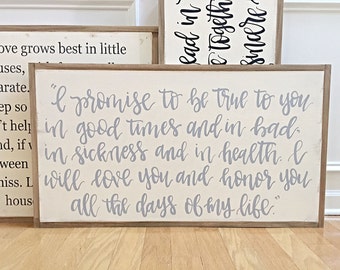 ove grows best in little
ouses,
arate.
eep so
't help
nd, if
ere
miss. L
house
ead in
e togethe
snare
"I promise to be true to you
in good times and in bad.
in sickness and in health. I
will love you and honor you
all the days of my life."